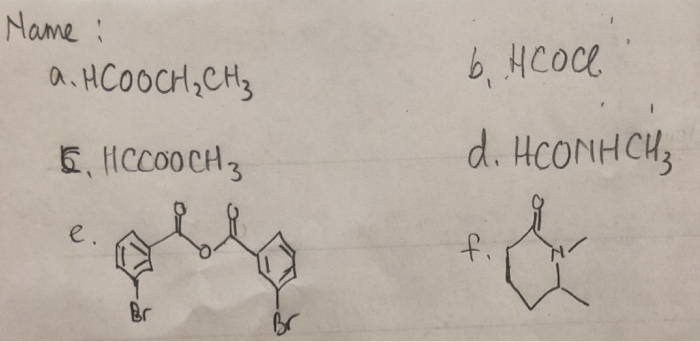 Name :
a. HCOOCH2CH3
b, HCOCl
c, HCCOOCH3
d. HCONHCH3
e.
O O
O
Br
Br
f.
O
N